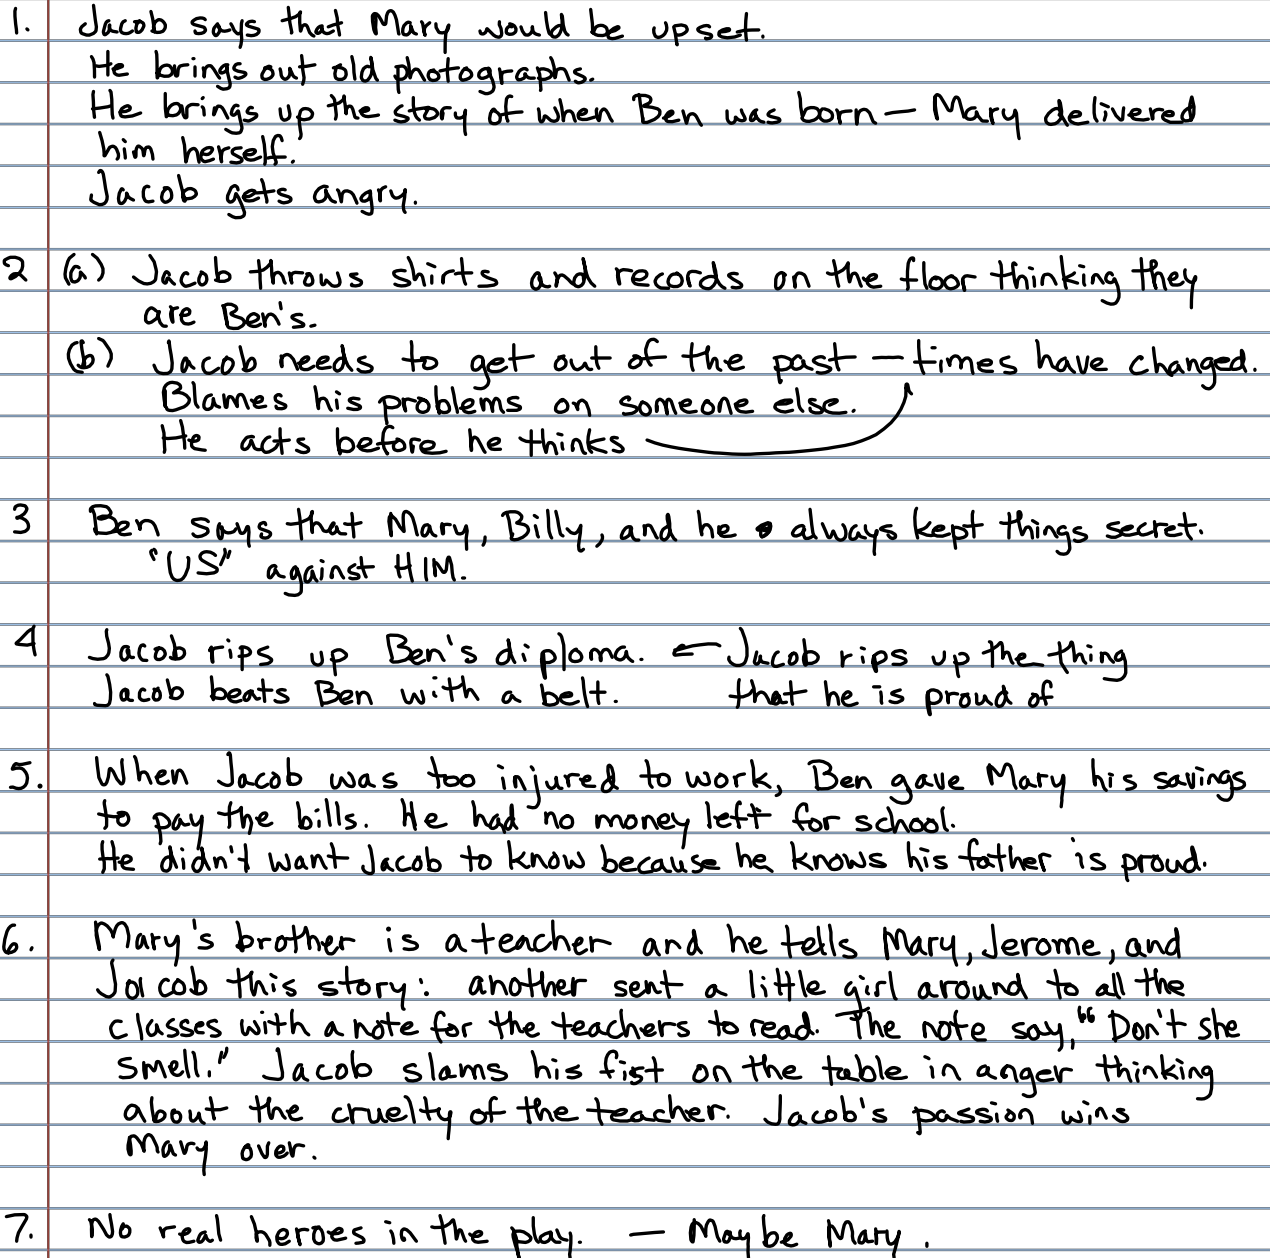 1. Jacob says that Mary would be upset.
He brings out old photographs.
He brings up the story of when Ben was born — Mary delivered
him herself.
Jacob gets angry.
2 (a) Jacob throws shirts and records on the floor thinking they
are Ben's.
(b) Jacob needs to get out of the past — times have changed.
Blames his problems on someone else.
He acts before he thinks
3 Ben says that Mary, Billy, and he always kept things secret.
"US" against HIM.
4 Jacob rips up Ben's diploma. ← Jacob rips up the thing
Jacob beats Ben with a belt. that he is proud of
5. When Jacob was too injured to work, Ben gave Mary his savings
to pay the bills. He had no money left for school.
He didn't want Jacob to know because he knows his father is proud.
6. Mary's brother is a teacher and he tells Mary, Jerome, and
Jacob this story: another sent a little girl around to all the
classes with a note for the teachers to read. The note say, "Don't she
smell." Jacob slams his fist on the table in anger thinking
about the cruelty of the teacher. Jacob's passion wins
Mary over.
7. No real heroes in the play. — Maybe Mary.